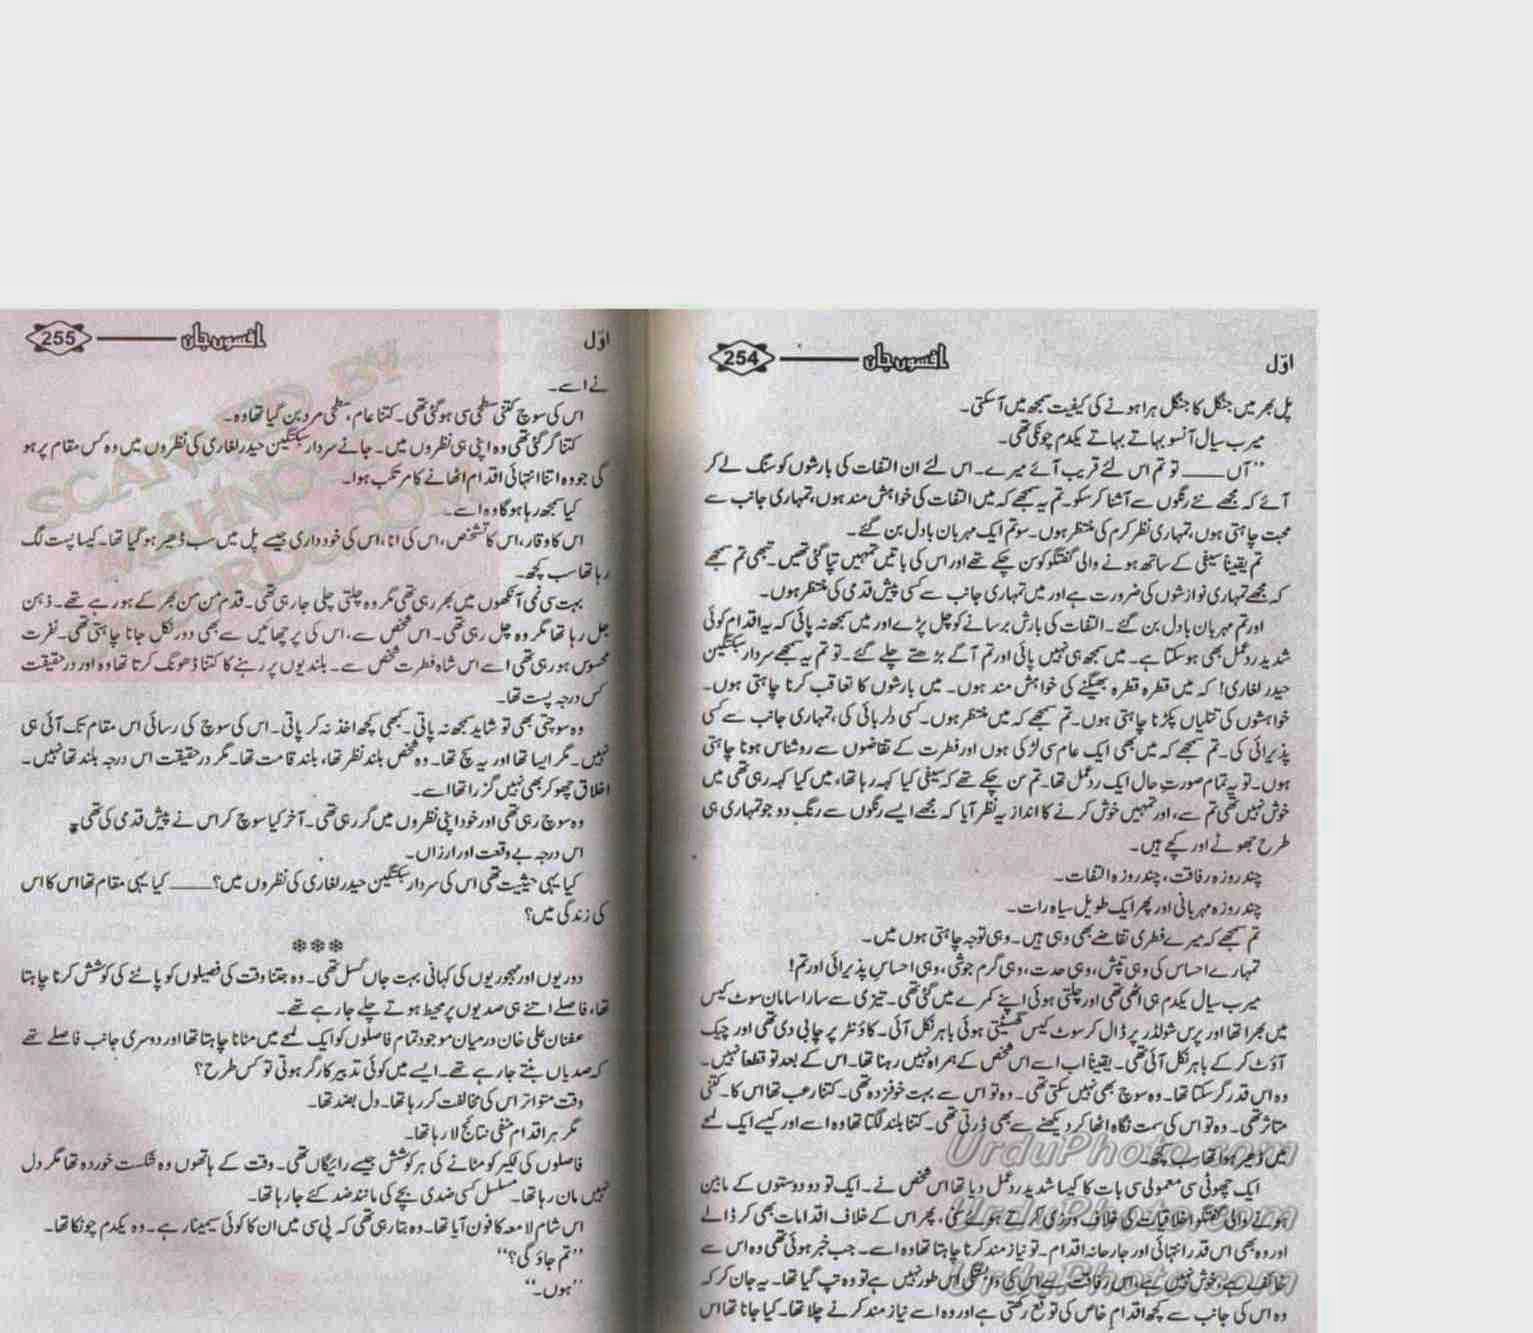 اوّل افسوں جان 254
پل بھر میں جنگل کا جنگل ہرا ہونے کی کیفیت سمجھ میں آ سکتی۔
میرب سیال آنسو بہاتے بہاتے یکدم چونکی تھی۔
”آں ـــــــ تو تم اس لئے قریب آئے میرے۔ اس لئے ان التفات کی بارشوں کو سنگ لے کر
آئے کہ مجھے نئے رنگوں سے آشنا کر سکو۔ تم یہ سمجھے کہ میں التفات کی خواہش مند ہوں، تمہاری جانب سے
محبت چاہتی ہوں، تمہاری نظر کرم کی منتظر ہوں۔ سو تم ایک مہربان بادل بن گئے۔
تم یقیناً سیفی کے ساتھ ہونے والی گفتگو کو سن چکے تھے اور اس کی باتیں تمہیں تپا گئی تھیں۔ تبھی تم سمجھے
کہ مجھے تمہاری نوازشوں کی ضرورت ہے اور میں تمہاری جانب سے کسی پیش قدمی کی منتظر ہوں۔
اور تم مہربان بادل بن گئے۔ التفات کی بارش برسانے کو چل پڑے اور میں سمجھ نہ پائی کہ یہ اقدام کوئی
شدید ردعمل بھی ہو سکتا ہے۔ میں سمجھ ہی نہیں پائی اور تم آگے بڑھتے چلے گئے۔ تو تم یہ سمجھے سردار سبکتگین
حیدر لغاری! کہ میں قطرہ قطرہ بھیگنے کی خواہش مند ہوں۔ میں بارشوں کا تعاقب کرنا چاہتی ہوں۔
خواہشوں کی تتلیاں پکڑنا چاہتی ہوں۔ تم سمجھے کہ میں منتظر ہوں۔ کسی دلربائی کی، تمہاری جانب سے کسی
پذیرائی کی۔ تم سمجھے کہ میں بھی ایک عام سی لڑکی ہوں اور فطرت کے تقاضوں سے روشناس ہونا چاہتی
ہوں۔ تو یہ تمام صورت حال ایک ردعمل تھا۔ تم سن چکے تھے کہ سیفی کیا کہہ رہا تھا، میں کیا کہہ رہی تھی میں
خوش نہیں تھی تم سے، اور تمہیں خوش کرنے کا انداز یہ نظر آیا کہ مجھے ایسے رنگوں سے رنگ دو جو تمہاری ہی
طرح جھوٹے اور کچے ہیں۔
چند روزہ رفاقت، چند روزہ التفات۔
چند روزہ مہربانی اور پھر ایک طویل سیاہ رات۔
تم سمجھے کہ میرے فطری تقاضے بھی وہی ہیں۔ وہی توجہ چاہتی ہوں میں۔
تمہارے احساس کی وہی تپش، وہی حدت، وہی گرم جوشی، وہی احساس پذیرائی اور تم!
میرب سیال یکدم ہی اٹھی تھی اور چلتی ہوئی اپنے کمرے میں گئی تھی۔ تیزی سے سارا سامان سوٹ کیس
میں بھرا تھا اور پرس شولڈر پر ڈال کر سوٹ کیس گھسیٹتی ہوئی باہر نکل آئی۔ کاؤنٹر پر چابی دی تھی اور چیک
آؤٹ کر کے باہر نکل آئی تھی۔ یقیناً اب اسے اس شخص کے ہمراہ نہیں رہنا تھا۔ اس کے بعد تو قطعاً نہیں۔
وہ اس قدر گر سکتا تھا۔ وہ سوچ بھی نہیں سکتی تھی۔ وہ تو اس سے بہت خوفزدہ تھی۔ کتنا رعب تھا اس کا۔ کتنی
متاثر تھی۔ وہ تو اس کی سمت نگاہ اٹھا کر دیکھنے سے بھی ڈرتی تھی۔ کتنا بلند لگتا تھا وہ اسے اور کیسے ایک لمحے
میں ڈھیر ہوا تھا سب کچھ۔
ایک چھوٹی سی معمولی سی بات کا کیسا شدید ردعمل دیا تھا اس شخص نے۔ ایک تو دو دوستوں کے مابین
ہونے والی گفتگو اخلاقیات کی خلاف ورزی کرتے ہوئے سنی، پھر اس کے خلاف اقدامات بھی کر ڈالے
اور وہ بھی اس قدر انتہائی اور جارحانہ اقدام۔ تو نیاز مند کرنا چاہتا تھا وہ اسے۔ جب خبر ہوئی تھی وہ اس سے
خائف ہے، خوش نہیں ہے، اس رفاقت سے اس کی وابستگی اس طور نہیں ہے تو وہ تپ گیا تھا۔ یہ جان کر کہ
وہ اس کی جانب سے کچھ اقدام خاص کی توقع رکھتی ہے اور وہ اسے نیاز مند کرنے چلا تھا۔ کیا جانا تھا اس
UrduPhoto.com
UrduPhoto.com
UrduPhoto.com
اوّل افسوں جان 255
نے اسے۔
اس کی سوچ کتنی سطحی سی ہو گئی تھی۔ کتنا عام، سطحی مرد بن گیا تھا وہ۔
کتنا گر گئی تھی وہ اپنی ہی نظروں میں۔ جانے سردار سبکتگین حیدر لغاری کی نظروں میں وہ کس مقام پر ہو
گی جو وہ اتنا انتہائی اقدام اٹھانے کا مرتکب ہوا۔
کیا سمجھ رہا ہوگا وہ اسے۔
اس کا وقار، اس کا تشخص، اس کی انا، اس کی خودداری جیسے پل میں سب ڈھیر ہو گیا تھا۔ کیسا پست لگ
رہا تھا سب کچھ۔
بہت سی نمی آنکھوں میں بھر رہی تھی مگر وہ چلتی چلی جا رہی تھی۔ قدم من من بھر کے ہو رہے تھے۔ ذہن
جل رہا تھا مگر وہ چل رہی تھی۔ اس شخص سے، اس کی پرچھائیں سے بھی دور نکل جانا چاہتی تھی۔ نفرت
محسوس ہو رہی تھی اسے اس شاہ فطرت شخص سے۔ بلندیوں پر رہنے کا کتنا ڈھونگ کرتا تھا وہ اور درحقیقت
کس درجہ پست تھا۔
وہ سوچتی بھی تو شاید سمجھ نہ پاتی۔ کبھی کچھ اخذ نہ کر پاتی۔ اس کی سوچ کی رسائی اس مقام تک آئی ہی
نہیں۔ مگر ایسا تھا اور یہ سچ تھا۔ وہ شخص بلند نظر تھا، بلند قامت تھا۔ مگر درحقیقت اس درجہ بلند تھا نہیں۔
اخلاق چھو کر بھی نہیں گزرا تھا اسے۔
وہ سوچ رہی تھی اور خود اپنی نظروں میں گر رہی تھی۔ آخر کیا سوچ کر اس نے پیش قدمی کی تھی؟
اس درجہ بے وقعت اور ارزاں۔
کیا یہی حیثیت تھی اس کی سردار سبکتگین حیدر لغاری کی نظروں میں؟ ـــــــ کیا یہی مقام تھا اس کا اس
کی زندگی میں؟
❄❄❄
دوریوں اور مہجوریوں کی کہانی بہت جاں گسل تھی۔ وہ جتنا وقت کی فصیلوں کو پاٹنے کی کوشش کرنا چاہتا
تھا، فاصلے اتنے ہی صدیوں پر محیط ہوتے چلے جا رہے تھے۔
عفنان علی خان درمیان موجود تمام فاصلوں کو ایک لمحے میں مٹانا چاہتا تھا اور دوسری جانب فاصلے تھے
کہ صدیاں بنتے جا رہے تھے۔ ایسے میں کوئی تدبیر کارگر ہوتی تو کس طرح؟
وقت متواتر اس کی مخالفت کر رہا تھا۔ دل بضد تھا۔
مگر ہر اقدام منفی نتائج لا رہا تھا۔
فاصلوں کی لکیر کو مٹانے کی ہر کوشش جیسے رائیگاں تھی۔ وقت کے ہاتھوں وہ شکست خوردہ تھا مگر دل
نہیں مان رہا تھا۔ مسلسل کسی ضدی بچے کی مانند ضد کئے جا رہا تھا۔
اس شام لامعہ کا فون آیا تھا۔ وہ بتا رہی تھی کہ پی سی میں ان کا کوئی سیمینار ہے۔ وہ یکدم چونکا تھا۔
”تم جاؤ گی؟“
”ہوں۔“
SCANNED BY